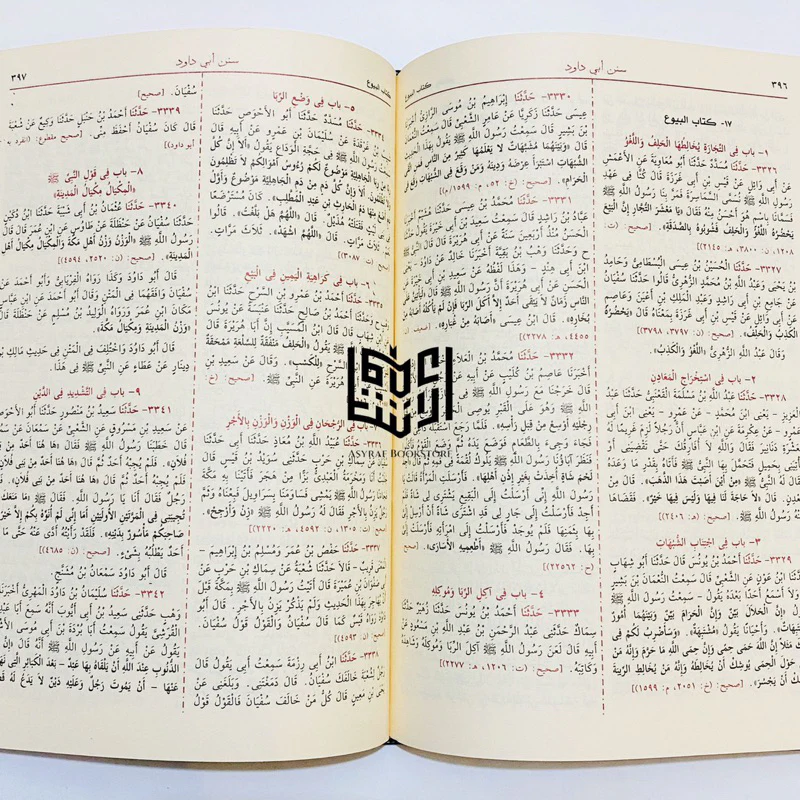 سنن أبي داود
٣٩٦
كتاب البيوع
١٧- كتاب البيوع
١- باب فِي التِّجَارَةِ يُخَالِطُهَا الْحَلِفُ وَاللَّغْوُ
٣٣٢٦- حَدَّثَنَا مُسَدَّدٌ حَدَّثَنَا أَبُو مُعَاوِيَةَ عَنِ الأَعْمَشِ
عَنْ أَبِي وَائِلٍ عَنْ قَيْسِ بْنِ أَبِي غَرَزَةَ قَالَ كُنَّا فِي عَهْدِ
رَسُولِ اللَّهِ ﷺ نُسَمَّى السَّمَاسِرَةَ فَمَرَّ بِنَا رَسُولُ اللَّهِ ﷺ
فَسَمَّانَا بِاسْمٍ هُوَ أَحْسَنُ مِنْهُ فَقَالَ «يَا مَعْشَرَ التُّجَّارِ إِنَّ الْبَيْعَ
يَحْضُرُهُ اللَّغْوُ وَالْحَلِفُ فَشُوبُوهُ بِالصَّدَقَةِ». [صحيح: (ت:
١٢٠٨، ن: ٣٨٠٠، هـ: ٢١٤٥)]
٣٣٢٧- حَدَّثَنَا الْحُسَيْنُ بْنُ عِيسَى الْبِسْطَامِيُّ وَحَامِدُ
بْنُ يَحْيَى وَعَبْدُ اللَّهِ بْنُ مُحَمَّدٍ الزُّهْرِيُّ قَالُوا حَدَّثَنَا سُفْيَانُ
عَنْ جَامِعِ بْنِ أَبِي رَاشِدٍ وَعَبْدِ الْمَلِكِ بْنِ أَعْيَنَ وَعَاصِمٍ
عَنْ أَبِي وَائِلٍ عَنْ قَيْسِ بْنِ أَبِي غَرَزَةَ بِمَعْنَاهُ قَالَ «يَحْضُرُهُ
الْكَذِبُ وَالْحَلِفُ». [صحيح: (ن: ٣٧٩٧، ٣٧٩٨)]
وَقَالَ عَبْدُ اللَّهِ الزُّهْرِيُّ «اللَّغْوُ وَالْكَذِبُ».
٢- باب فِي اسْتِخْرَاجِ الْمَعَادِنِ
٣٣٢٨- حَدَّثَنَا عَبْدُ اللَّهِ بْنُ مَسْلَمَةَ الْقَعْنَبِيُّ حَدَّثَنَا عَبْدُ
الْعَزِيزِ- يَعْنِي ابْنَ مُحَمَّدٍ- عَنْ عَمْرٍو- يَعْنِي ابْنَ أَبِي
عَمْرٍو- عَنْ عِكْرِمَةَ عَنِ ابْنِ عَبَّاسٍ أَنَّ رَجُلاً لَزِمَ غَرِيمًا لَهُ
بِعَشَرَةِ دَنَانِيرَ فَقَالَ وَاللَّهِ لاَ أُفَارِقُكَ حَتَّى تَقْضِيَنِي أَوْ
تَأْتِيَنِي بِحَمِيلٍ فَتَحَمَّلَ بِهَا النَّبِيُّ ﷺ فَأَتَاهُ بِقَدْرِ مَا وَعَدَهُ
فَقَالَ لَهُ النَّبِيُّ ﷺ «مِنْ أَيْنَ أَصَبْتَ هَذَا الذَّهَبَ». قَالَ مِنْ
مَعْدِنٍ. قَالَ «لاَ حَاجَةَ لَنَا فِيهَا وَلَيْسَ فِيهَا خَيْرٌ». فَقَضَاهَا
عَنْهُ رَسُولُ اللَّهِ ﷺ. [صحيح: (هـ: ٢٤٠٦)]
٣- باب فِي اجْتِنَابِ الشُّبُهَاتِ
٣٣٢٩- حَدَّثَنَا أَحْمَدُ بْنُ يُونُسَ قَالَ حَدَّثَنَا أَبُو شِهَابٍ
حَدَّثَنَا ابْنُ عَوْنٍ عَنِ الشَّعْبِيِّ قَالَ سَمِعْتُ النُّعْمَانَ بْنَ بَشِيرٍ
وَلاَ أَسْمَعُ أَحَدًا بَعْدَهُ يَقُولُ- سَمِعْتُ رَسُولَ اللَّهِ ﷺ
يَقُولُ «إِنَّ الْحَلاَلَ بَيِّنٌ وَإِنَّ الْحَرَامَ بَيِّنٌ وَبَيْنَهُمَا أُمُورٌ
مُشْتَبِهَاتٌ». وَأَحْيَانًا يَقُولُ «مُشْتَبِهَةٌ». «وَسَأَضْرِبُ لَكُمْ فِي
ذَلِكَ مَثَلاً إِنَّ اللَّهَ حَمَى حِمًى وَإِنَّ حِمَى اللَّهِ مَا حَرَّمَ وَإِنَّهُ مَنْ
يَرْعَ حَوْلَ الْحِمَى يُوشِكُ أَنْ يُخَالِطَهُ وَإِنَّهُ مَنْ يُخَالِطِ الرِّيبَةَ
يُوشِكُ أَنْ يَجْسُرَ». [صحيح: (خ: ٢٠٥١، م: ١٥٩٩)]
٣٣٣٠- حَدَّثَنَا إِبْرَاهِيمُ بْنُ مُوسَى الرَّازِيُّ
عِيسَى حَدَّثَنَا زَكَرِيَّا عَنْ عَامِرٍ الشَّعْبِيِّ قَالَ
بْنَ بَشِيرٍ قَالَ سَمِعْتُ رَسُولَ اللَّهِ ﷺ يَقُولُ
قَالَ «وَبَيْنَهُمَا مُشَبَّهَاتٌ لاَ يَعْلَمُهَا كَثِيرٌ مِنَ النَّاسِ
الشُّبُهَاتِ اسْتَبْرَأَ عِرْضَهُ وَدِينَهُ وَمَنْ وَقَعَ فِي الشُّبُهَاتِ وَقَعَ فِي
الْحَرَامِ». [صحيح: (خ: ٥٢، م: ١٥٩٩)]
٣٣٣١- حَدَّثَنَا مُحَمَّدُ بْنُ عِيسَى حَدَّثَنَا
عَبَّادُ بْنُ رَاشِدٍ قَالَ سَمِعْتُ سَعِيدَ بْنَ أَبِي
الْحَسَنُ مُنْذُ أَرْبَعِينَ سَنَةً عَنْ أَبِي هُرَيْرَةَ قَالَ قَالَ
ح وَحَدَّثَنَا وَهْبُ بْنُ بَقِيَّةَ أَخْبَرَنَا خَالِدٌ عَنْ دَاوُدَ
ابْنَ أَبِي هِنْدٍ- وَهَذَا لَفْظُهُ عَنْ سَعِيدِ بْنِ أَبِي
الْحَسَنِ عَنْ أَبِي هُرَيْرَةَ أَنَّ رَسُولَ اللَّهِ ﷺ قَالَ «لَيَأْتِيَنَّ
النَّاسِ زَمَانٌ لاَ يَبْقَى أَحَدٌ إِلاَّ أَكَلَ الرِّبَا فَإِنْ لَمْ يَأْكُلْهُ
بُخَارِهِ». قَالَ ابْنُ عِيسَى «أَصَابَهُ مِنْ غُبَارِهِ».
٤٤٥٥، هـ: ٢٢٧٨)]
٣٣٣٢- حَدَّثَنَا مُحَمَّدُ بْنُ الْعَلاَءِ
أَخْبَرَنَا عَاصِمُ بْنُ كُلَيْبٍ عَنْ أَبِيهِ عَنْ
قَالَ خَرَجْنَا مَعَ رَسُولِ اللَّهِ ﷺ
اللَّهِ ﷺ وَهُوَ عَلَى الْقَبْرِ يُوصِي
رِجْلَيْهِ أَوْسِعْ مِنْ قِبَلِ رَأْسِهِ».
فَجَاءَ وَجِيءَ بِالطَّعَامِ فَوَضَعَ يَدَهُ ثُمَّ وَضَعَ
فَنَظَرَ آبَاؤُنَا رَسُولَ اللَّهِ ﷺ يَلُوكُ لُقْمَةً فِي فَمِهِ
لَحْمَ شَاةٍ أُخِذَتْ بِغَيْرِ إِذْنِ أَهْلِهَا». فَأَرْسَلَتِ
رَسُولَ اللَّهِ إِنِّي أَرْسَلْتُ إِلَى الْبَقِيعِ يَشْتَرِي لِي شَاةً
فَأَرْسَلْتُ إِلَى جَارٍ لِي قَدِ اشْتَرَى شَاةً أَنْ أَرْسِلْ
بِهَا بِثَمَنِهَا فَلَمْ يُوجَدْ فَأَرْسَلْتُ إِلَى امْرَأَتِهِ فَأَرْسَلَتْ
بِهَا. فَقَالَ رَسُولُ اللَّهِ ﷺ «أَطْعِمِيهِ الأُسَارَى».
(ح: ٢٢٥٦٢)]
٤- باب فِي آكِلِ الرِّبَا وَمُوكِلِهِ
٣٣٣٣- حَدَّثَنَا أَحْمَدُ بْنُ يُونُسَ حَدَّثَنَا زُهَيْرٌ حَدَّثَنَا
سِمَاكٌ حَدَّثَنِي عَبْدُ الرَّحْمَنِ بْنُ عَبْدِ اللَّهِ بْنِ مَسْعُودٍ عَنْ
أَبِيهِ قَالَ لَعَنَ رَسُولُ اللَّهِ ﷺ آكِلَ الرِّبَا وَمُوكِلَهُ وَشَاهِدَهُ
وَكَاتِبَهُ. [صحيح: (ت: ١٢٠٦، م: ١٥٩٧، هـ: ٢٢٧٧)]
سنن أبي داود
٣٩٧
كتاب البيوع
٥- باب فِي وَضْعِ الرِّبَا
٣٣٣٤- حَدَّثَنَا مُسَدَّدٌ حَدَّثَنَا أَبُو الأَحْوَصِ حَدَّثَنَا
شَبِيبُ بْنُ غَرْقَدَةَ عَنْ سُلَيْمَانَ بْنِ عَمْرٍو عَنْ أَبِيهِ قَالَ
سَمِعْتُ رَسُولَ اللَّهِ ﷺ فِي حَجَّةِ الْوَدَاعِ يَقُولُ «أَلاَ إِنَّ كُلَّ
رِبًا مِنْ رِبَا الْجَاهِلِيَّةِ مَوْضُوعٌ لَكُمْ رُءُوسُ أَمْوَالِكُمْ لاَ تَظْلِمُونَ
وَلاَ تُظْلَمُونَ. أَلاَ وَإِنَّ كُلَّ دَمٍ مِنْ دَمِ الْجَاهِلِيَّةِ مَوْضُوعٌ وَأَوَّلُ
دَمٍ أَضَعُ مِنْهَا دَمُ الْحَارِثِ بْنِ عَبْدِ الْمُطَّلِبِ». كَانَ مُسْتَرْضَعًا
فِي بَنِي لَيْثٍ فَقَتَلَتْهُ هُذَيْلٌ. قَالَ «اللَّهُمَّ هَلْ بَلَّغْتُ». قَالُوا
نَعَمْ. ثَلاَثَ مَرَّاتٍ. قَالَ «اللَّهُمَّ اشْهَدْ». ثَلاَثَ مَرَّاتٍ.
[صحيح: (ت: ٣٠٨٧)]
٦- باب فِي كَرَاهِيَةِ الْيَمِينِ فِي الْبَيْعِ
٣٣٣٥- حَدَّثَنَا أَحْمَدُ بْنُ عَمْرِو بْنِ السَّرْحِ حَدَّثَنَا ابْنُ
وَهْبٍ ح وَحَدَّثَنَا أَحْمَدُ بْنُ صَالِحٍ حَدَّثَنَا عَنْبَسَةُ عَنْ يُونُسَ
عَنِ ابْنِ شِهَابٍ قَالَ قَالَ ابْنُ الْمُسَيَّبِ إِنَّ أَبَا هُرَيْرَةَ قَالَ
سَمِعْتُ رَسُولَ اللَّهِ ﷺ يَقُولُ «الْحَلِفُ مَنْفَقَةٌ لِلسِّلْعَةِ مَمْحَقَةٌ
لِلْبَرَكَةِ». قَالَ ابْنُ السَّرْحِ «لِلْكَسْبِ». وَقَالَ عَنْ سَعِيدِ بْنِ
الْمُسَيَّبِ عَنْ أَبِي هُرَيْرَةَ عَنِ النَّبِيِّ ﷺ. [صحيح: (خ:
باب فِي الرُّجْحَانِ فِي الْوَزْنِ وَالْوَزْنِ بِالأَجْرِ
٣٣٣٦- حَدَّثَنَا عُبَيْدُ اللَّهِ بْنُ مُعَاذٍ حَدَّثَنَا أَبِي حَدَّثَنَا
سُفْيَانُ عَنْ سِمَاكِ بْنِ حَرْبٍ حَدَّثَنِي سُوَيْدُ بْنُ قَيْسٍ
قَالَ جَلَبْتُ أَنَا وَمَخْرَمَةُ الْعَبْدِيُّ بَزًّا مِنْ هَجَرَ فَأَتَيْنَا بِهِ مَكَّةَ
فَجَاءَنَا رَسُولُ اللَّهِ ﷺ يَمْشِي فَسَاوَمَنَا بِسَرَاوِيلَ فَبِعْنَاهُ وَثَمَّ
رَجُلٌ يَزِنُ بِالأَجْرِ فَقَالَ لَهُ رَسُولُ اللَّهِ ﷺ «زِنْ وَأَرْجِحْ».
[صحيح: (ت: ١٣٠٥، ن: ٤٥٩٢، هـ: ٢٢٢٠)]
٣٣٣٧- حَدَّثَنَا حَفْصُ بْنُ عُمَرَ وَمُسْلِمُ بْنُ إِبْرَاهِيمَ-
الْمَعْنَى قَرِيبٌ- قَالاَ حَدَّثَنَا شُعْبَةُ عَنْ سِمَاكِ بْنِ حَرْبٍ عَنْ
أَبِي صَفْوَانَ بْنِ عُمَيْرَةَ قَالَ أَتَيْتُ رَسُولَ اللَّهِ ﷺ بِمَكَّةَ قَبْلَ
أَنْ يُهَاجِرَ بِهَذَا الْحَدِيثِ وَلَمْ يَذْكُرْ يَزِنُ بِالأَجْرِ. قَالَ أَبُو
دَاوُدَ رَوَاهُ قَيْسٌ كَمَا قَالَ سُفْيَانُ وَالْقَوْلُ قَوْلُ سُفْيَانَ.
[صحيح: (ن: ٤٥٩٣)]
٣٣٣٨- حَدَّثَنَا ابْنُ أَبِي رِزْمَةَ سَمِعْتُ أَبِي يَقُولُ قَالَ
رَجُلٌ لِشُعْبَةَ خَالَفَكَ سُفْيَانُ. قَالَ دَمَغْتَنِي. وَبَلَغَنِي عَنْ
يَحْيَى بْنِ مَعِينٍ قَالَ كُلُّ مَنْ خَالَفَ سُفْيَانَ فَالْقَوْلُ قَوْلُ
سُفْيَانَ. [صحيح]
٣٣٣٩- حَدَّثَنَا أَحْمَدُ بْنُ حَنْبَلٍ حَدَّثَنَا وَكِيعٌ عَنْ شُعْبَةَ
قَالَ كَانَ سُفْيَانُ أَحْفَظَ مِنِّي. [صحيح مقطوع: (انفرد به
أبو داود)]
٨- باب فِي قَوْلِ النَّبِيِّ ﷺ
«الْمِكْيَالُ مِكْيَالُ الْمَدِينَةِ»
٣٣٤٠- حَدَّثَنَا عُثْمَانُ بْنُ أَبِي شَيْبَةَ حَدَّثَنَا ابْنُ دُكَيْنٍ
حَدَّثَنَا سُفْيَانُ عَنْ حَنْظَلَةَ عَنْ طَاوُسٍ عَنِ ابْنِ عُمَرَ قَالَ قَالَ
رَسُولُ اللَّهِ ﷺ «الْوَزْنُ وَزْنُ أَهْلِ مَكَّةَ وَالْمِكْيَالُ مِكْيَالُ أَهْلِ
الْمَدِينَةِ». [صحيح: (ن: ٢٥٢٠، ٤٥٩٤)]
قَالَ أَبُو دَاوُدَ وَكَذَا رَوَاهُ الْفِرْيَابِيُّ وَأَبُو أَحْمَدَ عَنْ
سُفْيَانَ وَافَقَهُمَا فِي الْمَتْنِ وَقَالَ أَبُو أَحْمَدَ عَنِ ابْنِ عَبَّاسٍ
مَكَانَ ابْنِ عُمَرَ وَرَوَاهُ الْوَلِيدُ بْنُ مُسْلِمٍ عَنْ حَنْظَلَةَ قَالَ
«وَزْنُ الْمَدِينَةِ وَمِكْيَالُ مَكَّةَ».
قَالَ أَبُو دَاوُدَ وَاخْتُلِفَ فِي الْمَتْنِ فِي حَدِيثِ مَالِكِ بْنِ
دِينَارٍ عَنْ عَطَاءٍ عَنِ النَّبِيِّ ﷺ
٩- باب فِي التَّشْدِيدِ فِي الدَّيْنِ
٣٣٤١- حَدَّثَنَا سَعِيدُ بْنُ مَنْصُورٍ حَدَّثَنَا أَبُو الأَحْوَصِ
عَنْ سَعِيدِ بْنِ مَسْرُوقٍ عَنِ الشَّعْبِيِّ عَنْ سَمْعَانَ عَنْ سَمُرَةَ
قَالَ خَطَبَنَا رَسُولُ اللَّهِ ﷺ فَقَالَ «هَا هُنَا أَحَدٌ مِنْ بَنِي
فُلاَنٍ». فَلَمْ يُجِبْهُ أَحَدٌ ثُمَّ قَالَ «هَا هُنَا أَحَدٌ مِنْ بَنِي فُلاَنٍ».
فَلَمْ يُجِبْهُ أَحَدٌ ثُمَّ قَالَ «هَا هُنَا أَحَدٌ مِنْ بَنِي فُلاَنٍ». فَقَامَ
رَجُلٌ فَقَالَ أَنَا يَا رَسُولَ اللَّهِ. فَقَالَ ﷺ «مَا مَنَعَكَ أَنْ
تُجِيبَنِي فِي الْمَرَّتَيْنِ الأُولَيَيْنِ أَمَا إِنِّي لَمْ أُنَوِّهْ بِكُمْ إِلاَّ خَيْرًا إِنَّ
صَاحِبَكُمْ مَأْسُورٌ بِدَيْنِهِ». فَلَقَدْ رَأَيْتُهُ أَدَّى عَنْهُ حَتَّى مَا
أَحَدٌ يَطْلُبُهُ بِشَيْءٍ. [صحيح: (ن: ٤٦٨٥)]
قَالَ أَبُو دَاوُدَ سَمْعَانُ بْنُ مُشَنَّجٍ.
٣٣٤٢- حَدَّثَنَا سُلَيْمَانُ بْنُ دَاوُدَ الْمَهْرِيُّ أَخْبَرَنَا ابْنُ
وَهْبٍ حَدَّثَنِي سَعِيدُ بْنُ أَبِي أَيُّوبَ أَنَّهُ سَمِعَ أَبَا عَبْدِ اللَّهِ
الْقُرَشِيَّ يَقُولُ سَمِعْتُ أَبَا بُرْدَةَ بْنَ أَبِي مُوسَى الأَشْعَرِيَّ
يَقُولُ عَنْ أَبِيهِ عَنْ رَسُولِ اللَّهِ ﷺ أَنَّهُ قَالَ «إِنَّ أَعْظَمَ
الذُّنُوبِ عِنْدَ اللَّهِ أَنْ يَلْقَاهُ بِهَا عَبْدٌ- بَعْدَ الْكَبَائِرِ الَّتِي نَهَى اللَّهُ
عَنْهَا- أَنْ يَمُوتَ رَجُلٌ وَعَلَيْهِ دَيْنٌ لاَ يَدَعُ لَهُ قَضَاءً
ASYRAF BOOKSTORE